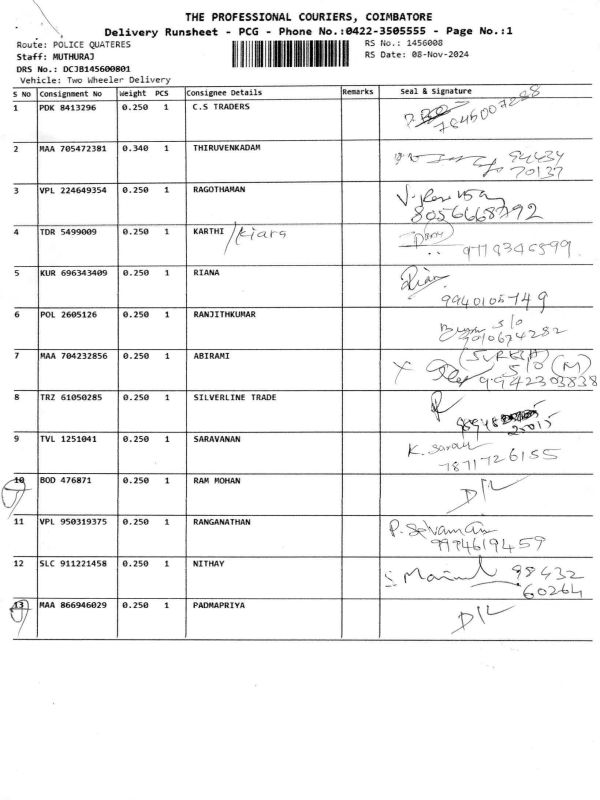 THE PROFESSIONAL COURIERS, COIMBATORE
Delivery Runsheet - PCG - Phone No.:0422-3505555 - Page No.:1
Route: POLICE QUATERES RS No.: 1456008
Staff: MUTHURAJ RS Date: 08-Nov-2024
DRS No.: DCJB145600801
Vehicle: Two Wheeler Delivery
S No Consignment No Weight PCS Consignee Details Remarks Seal & Signature
1 PDK 8413296 0.250 1 C.S TRADERS
2 MAA 705472381 0.340 1 THIRUVENKADAM 94434
70137
3 VPL 224649354 0.250 1 RAGOTHAMAN
8056668792
4 TDR 5499009 0.250 1 KARTHI /Kiara
9119346599
5 KUR 696343409 0.250 1 RIANA Rian
9940105749
6 POL 2605126 0.250 1 RANJITHKUMAR S/o
9010674282
7 MAA 704232856 0.250 1 ABIRAMI (SURESH)
X S/O (M)
9942303838
8 TRZ 61050285 0.250 1 SILVERLINE TRADE
25015
9 TVL 1251041 0.250 1 SARAVANAN K. Sarav
7871726155
10 BOD 476871 0.250 1 RAM MOHAN D/L
11 VPL 950319375 0.250 1 RANGANATHAN P. Selvaman
9994619459
12 SLC 911221458 0.250 1 NITHAY 98432
60264
13 MAA 866946029 0.250 1 PADMAPRIYA D/L